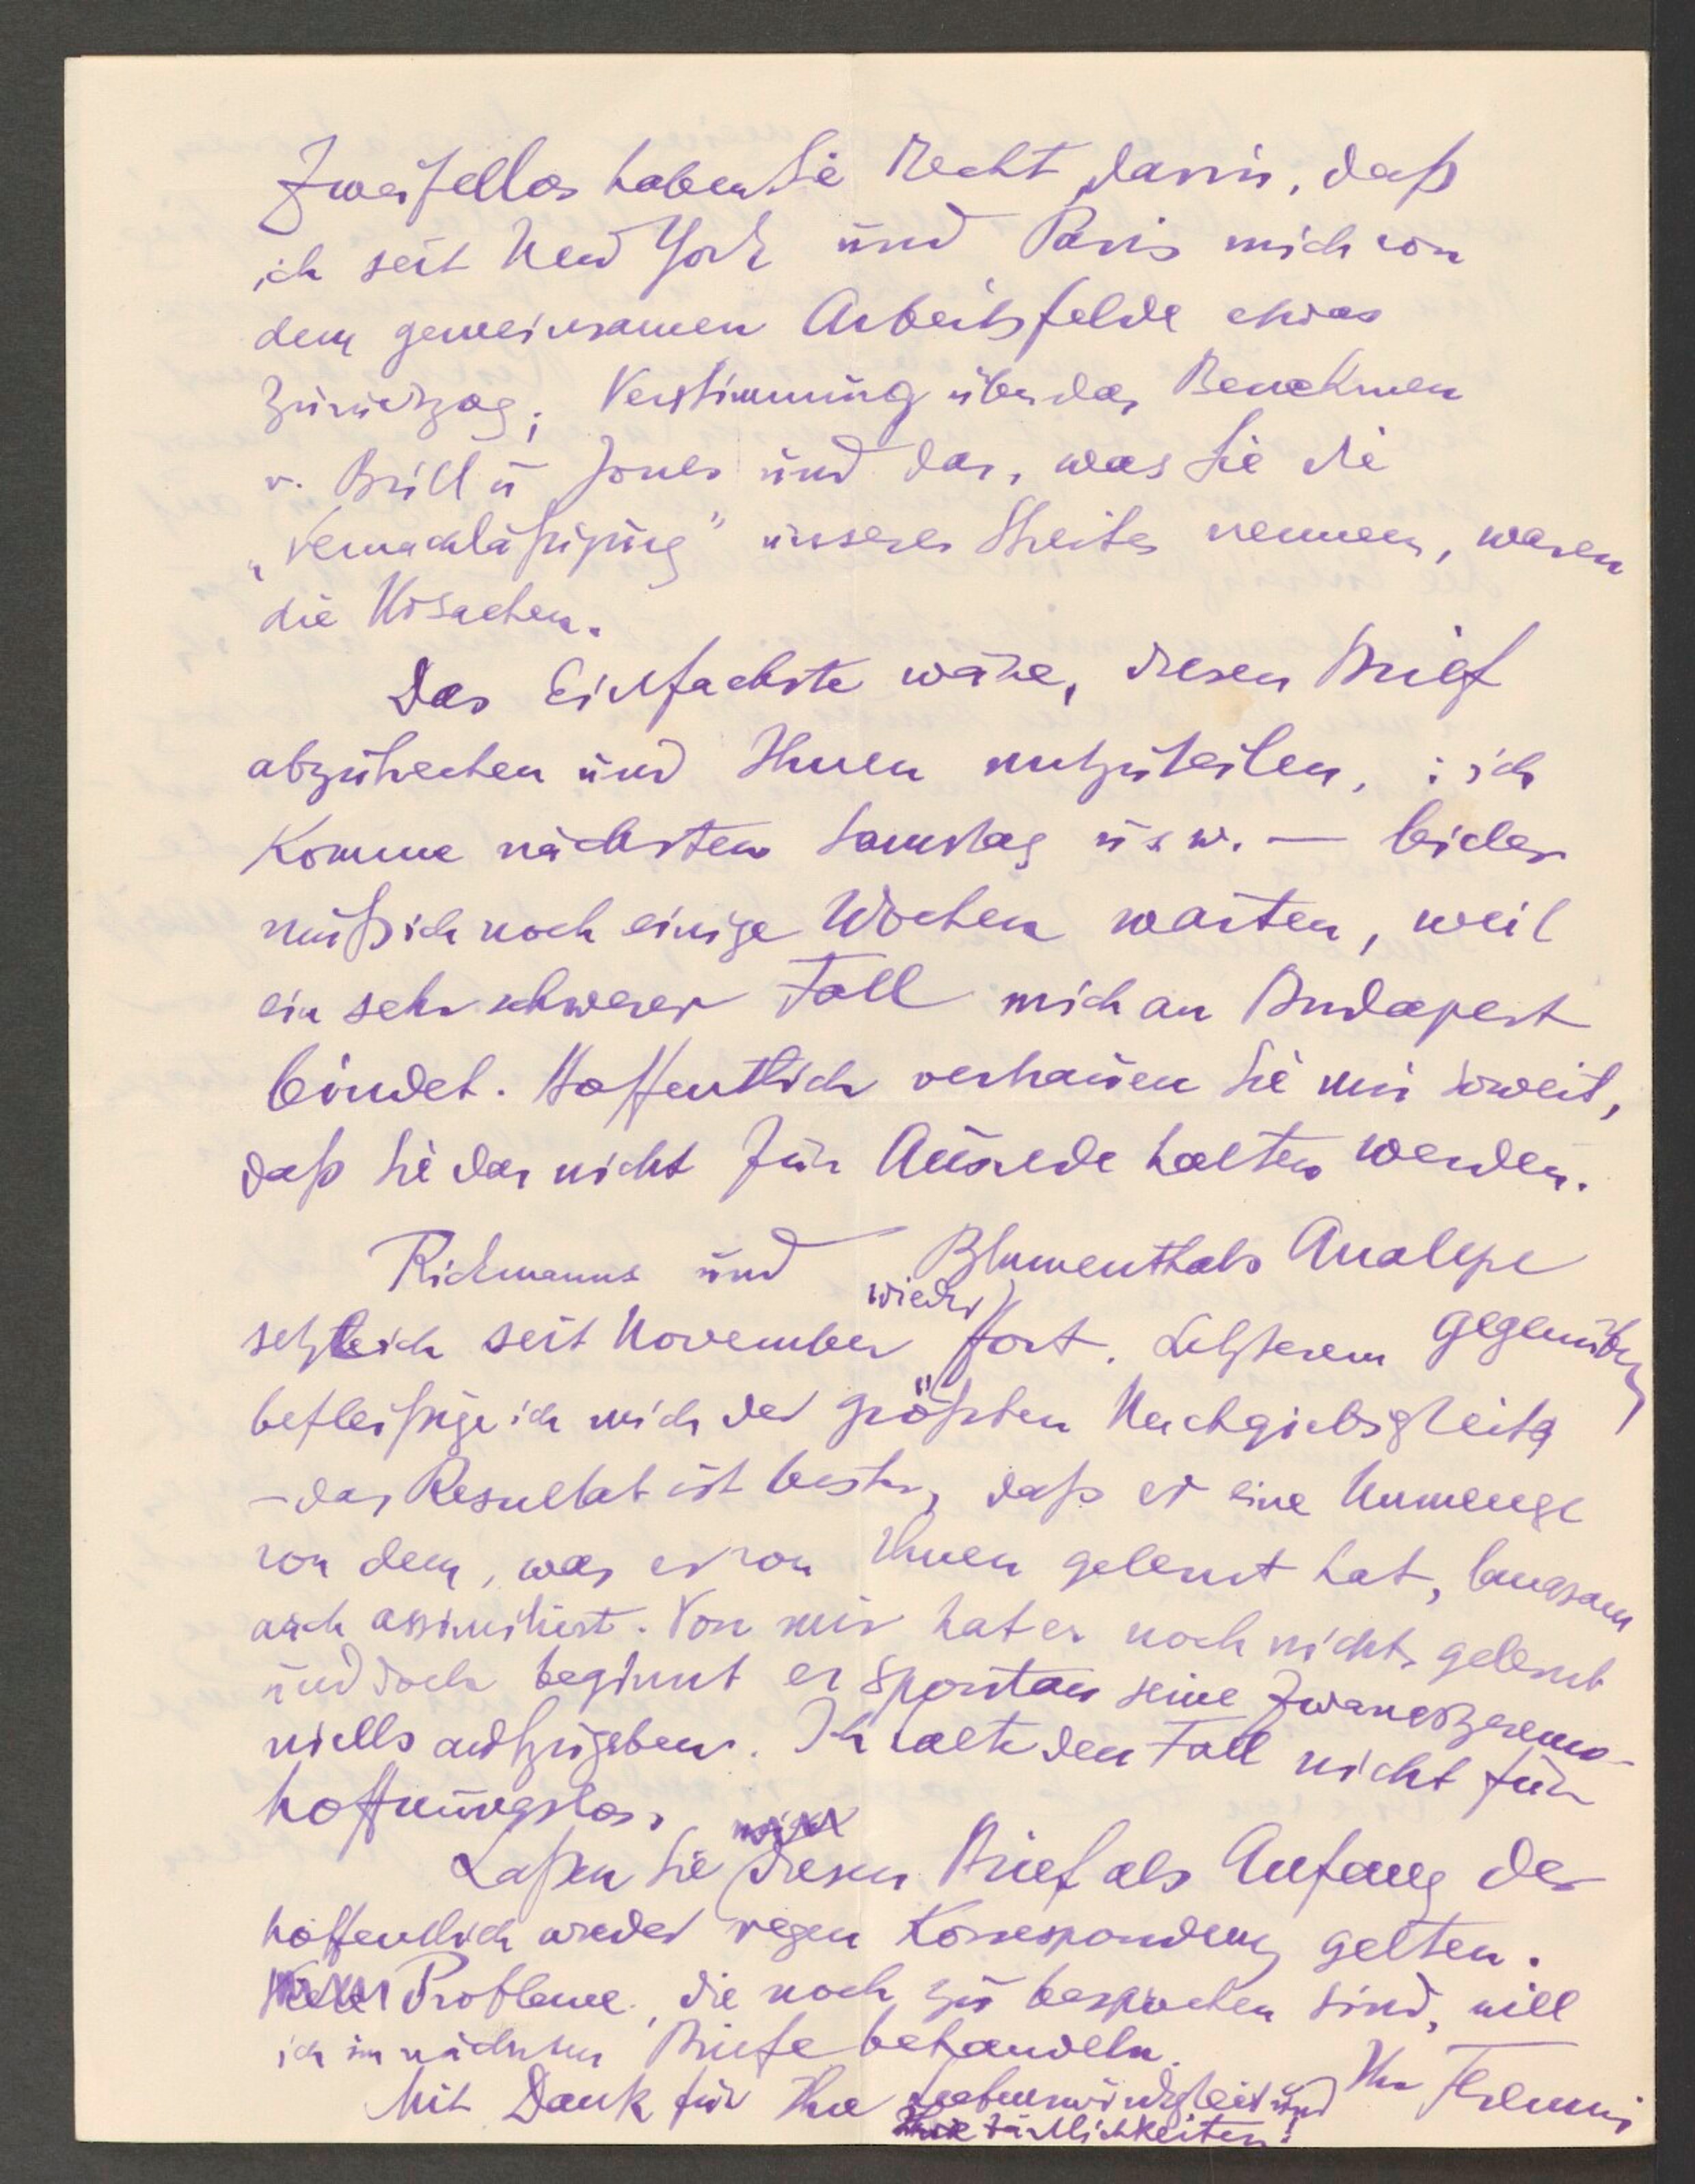 Zweifellos haben Sie Recht darin, daß
ich seit New York und Paris mich von
dem gemeinsamen Arbeitsfelde etwas
zurückzog; Verstimmung über das Benehmen
v. Brill u Jones und das, was Sie die
„Vernachläßigung” unseres Streites nennen, waren
die Ursachen.
Das Einfachste wäre, diesen Brief
abzubrechen und Ihnen mitzuteilen, : ich
komme nächsten Samstag usw. — leider
muß ich noch einige Wochen warten, weil
ein sehr schwerer Fall mich an Budapest
bindet. Hoffentlich vertrauen Sie mir soweit,
daß Sie das nicht für Ausrede halten werden.
Rickmanns und Blumenthals Analyse
setzte ich seit November wieder fort. Letzterem gegenüber
befleißige ich mich der größten Nachgiebigkeit
– das Resultat ist bisher, daß er eine Unmenge
von dem, was er von Ihnen gelernt hat, langsam
auch assimiliert. Von mir hat er noch nichts gelernt
und doch beginnt er spontan seine Zwangszeremo-
niells aufzugeben. Ich halte den Fall nicht für
hoffnungslos.
Laßen Sie diesen Brief als Anfang der
hoffentlich wieder regen Korrespondenz gelten.
Probleme, die noch zu besprechen sind, will
ich im nächsten Briefe behandeln.
Mit Dank für Ihre Liebenswürdigkeit und Ihr Ferenczi
Zärtlichkeiten!